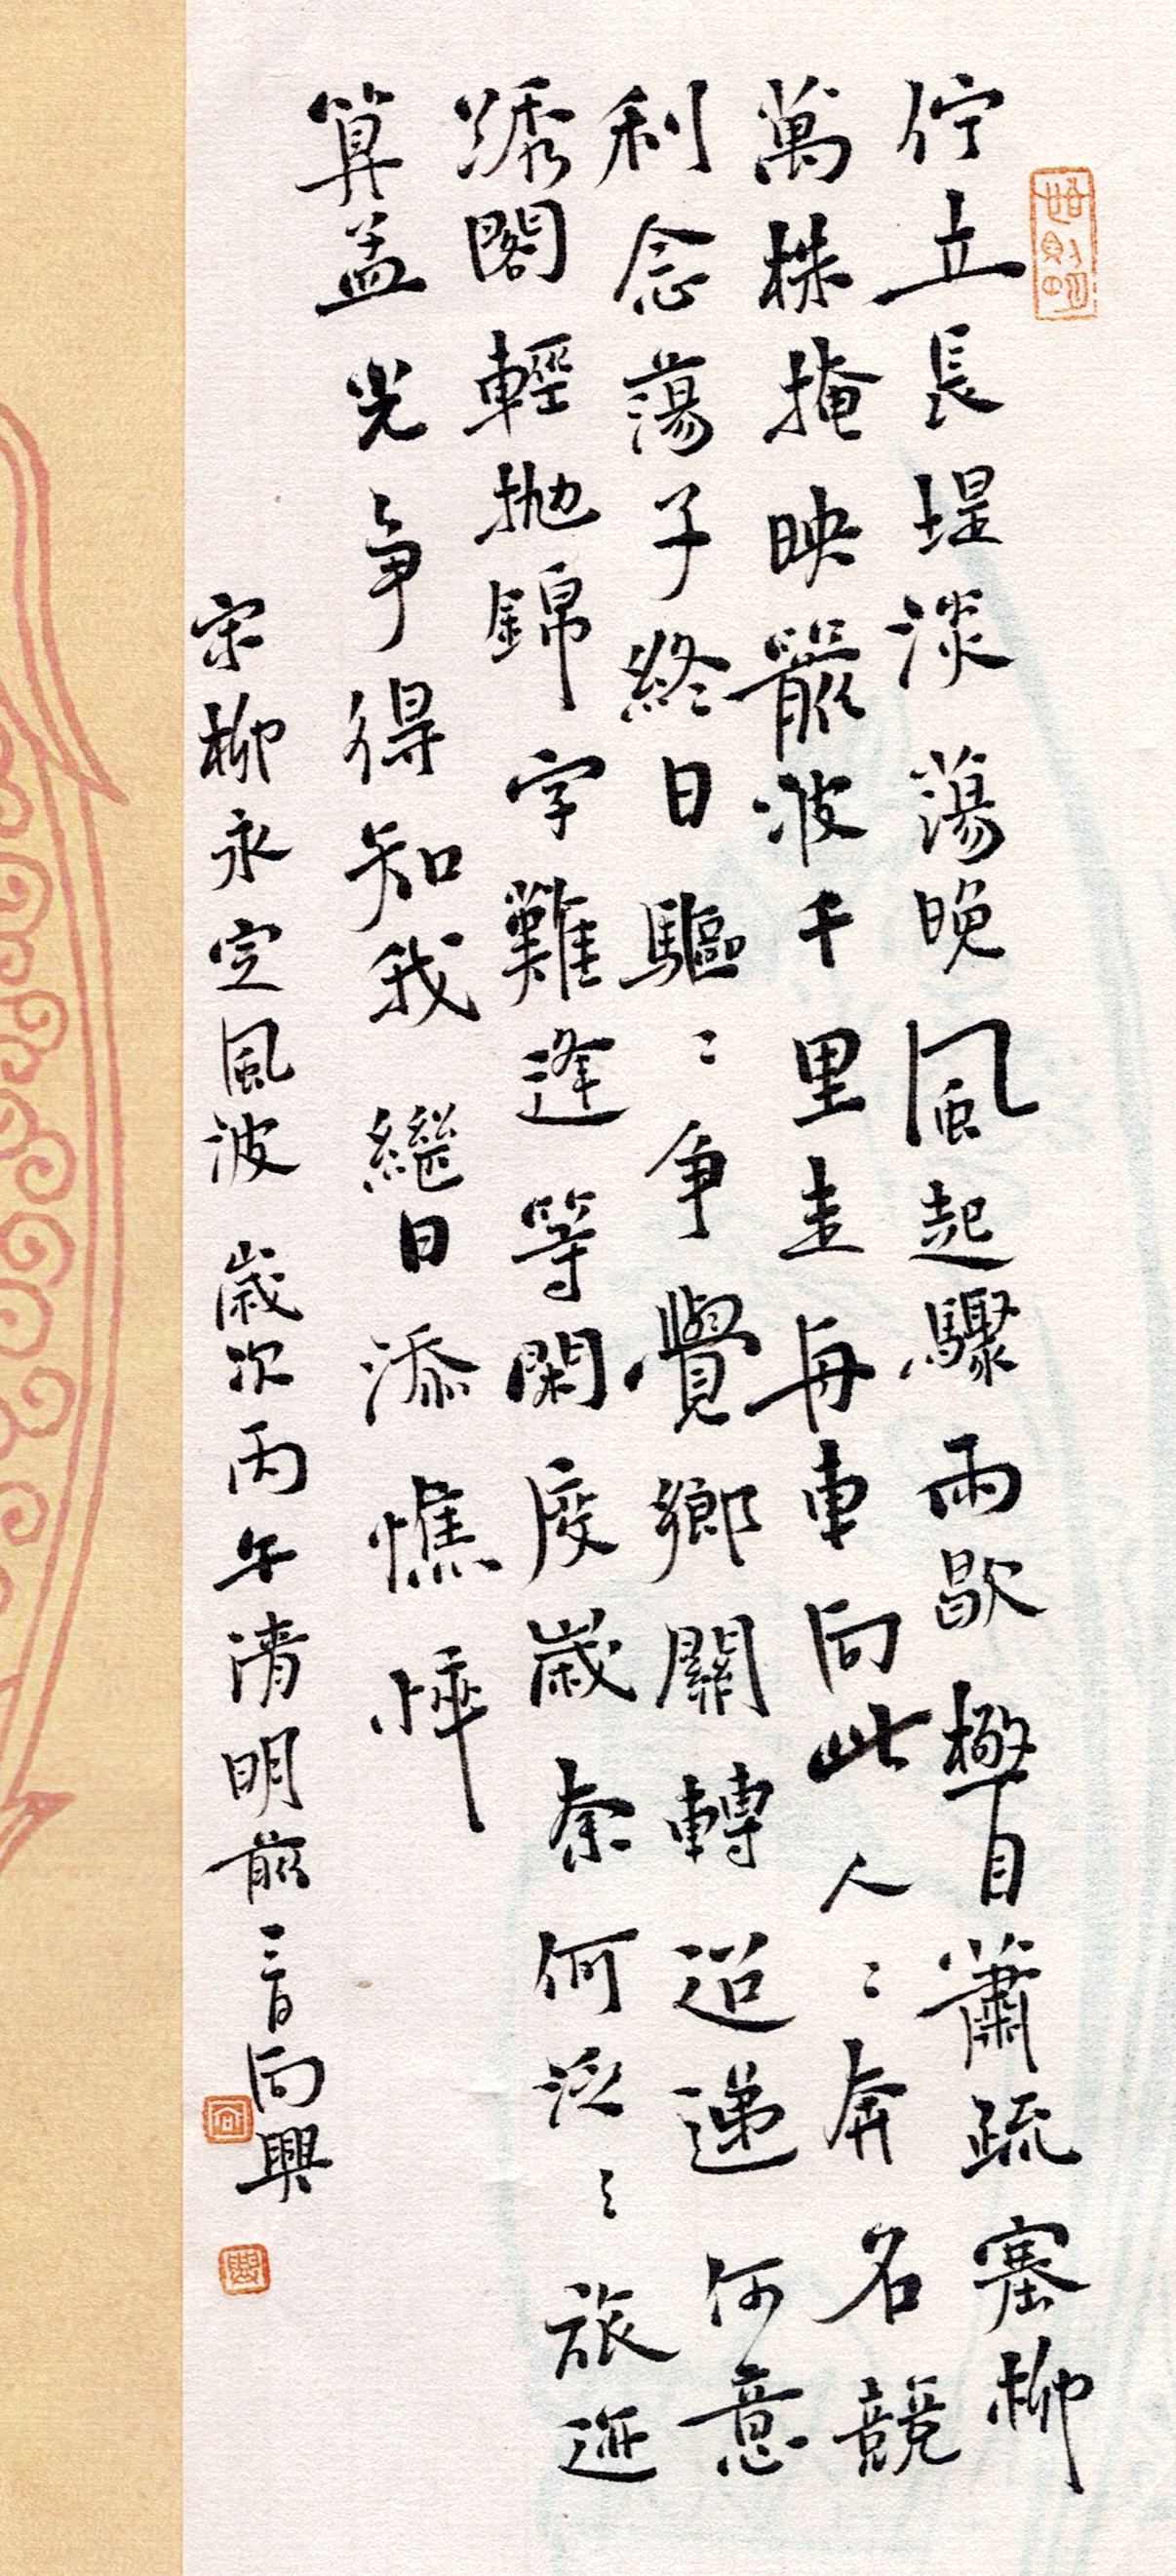 佇立長堤淡蕩晚風起驟雨歇極目蕭疏塞柳
萬株掩映箭波千里走舟車向此人〻奔名競
利念蕩子終日驅〻爭覺鄉關轉迢遞何意
繡閣輕拋錦字難逢等閑度歲奈何泛〻旅迹
算孟光爭得知我繼日添憔悴
宋柳永定風波 歲次丙午清明前三日向興
向